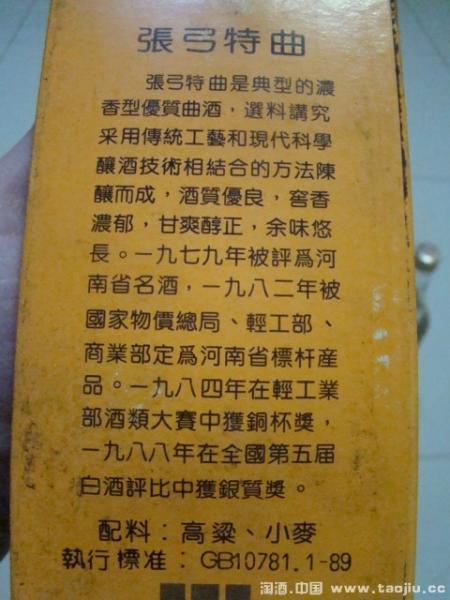 張弓特曲
張弓特曲是典型的濃
香型優質曲酒，選料講究
采用傳統工藝和現代科學
釀酒技術相結合的方法陳
釀而成，酒質優良，窖香
濃郁，甘爽醇正，余味悠
長。一九七九年被評爲河
南省名酒，一九八二年被
國家物價總局、輕工部、
商業部定爲河南省標杆産
品。一九八四年在輕工業
部酒類大賽中獲銅杯獎，
一九八八年在全國第五届
白酒評比中獲銀質獎。
配料：高粱、小麥
執行標准：GB10781.1-89
淘酒.中国 www.taojiu.cc